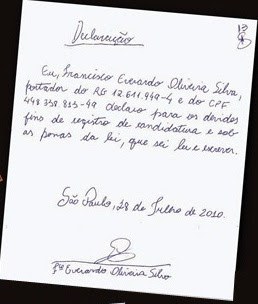 Declaração
Eu, Francisco Everardo Oliveira Silva,
portador do RG 12.611.949-4 e do CPF
448.338.813-49 declaro para os devidos
fins de registro de candidatura e sob
as penas da lei, que sei ler e escrever.
São Paulo, 28 de Julho de 2010.
Everardo Oliveira Silva